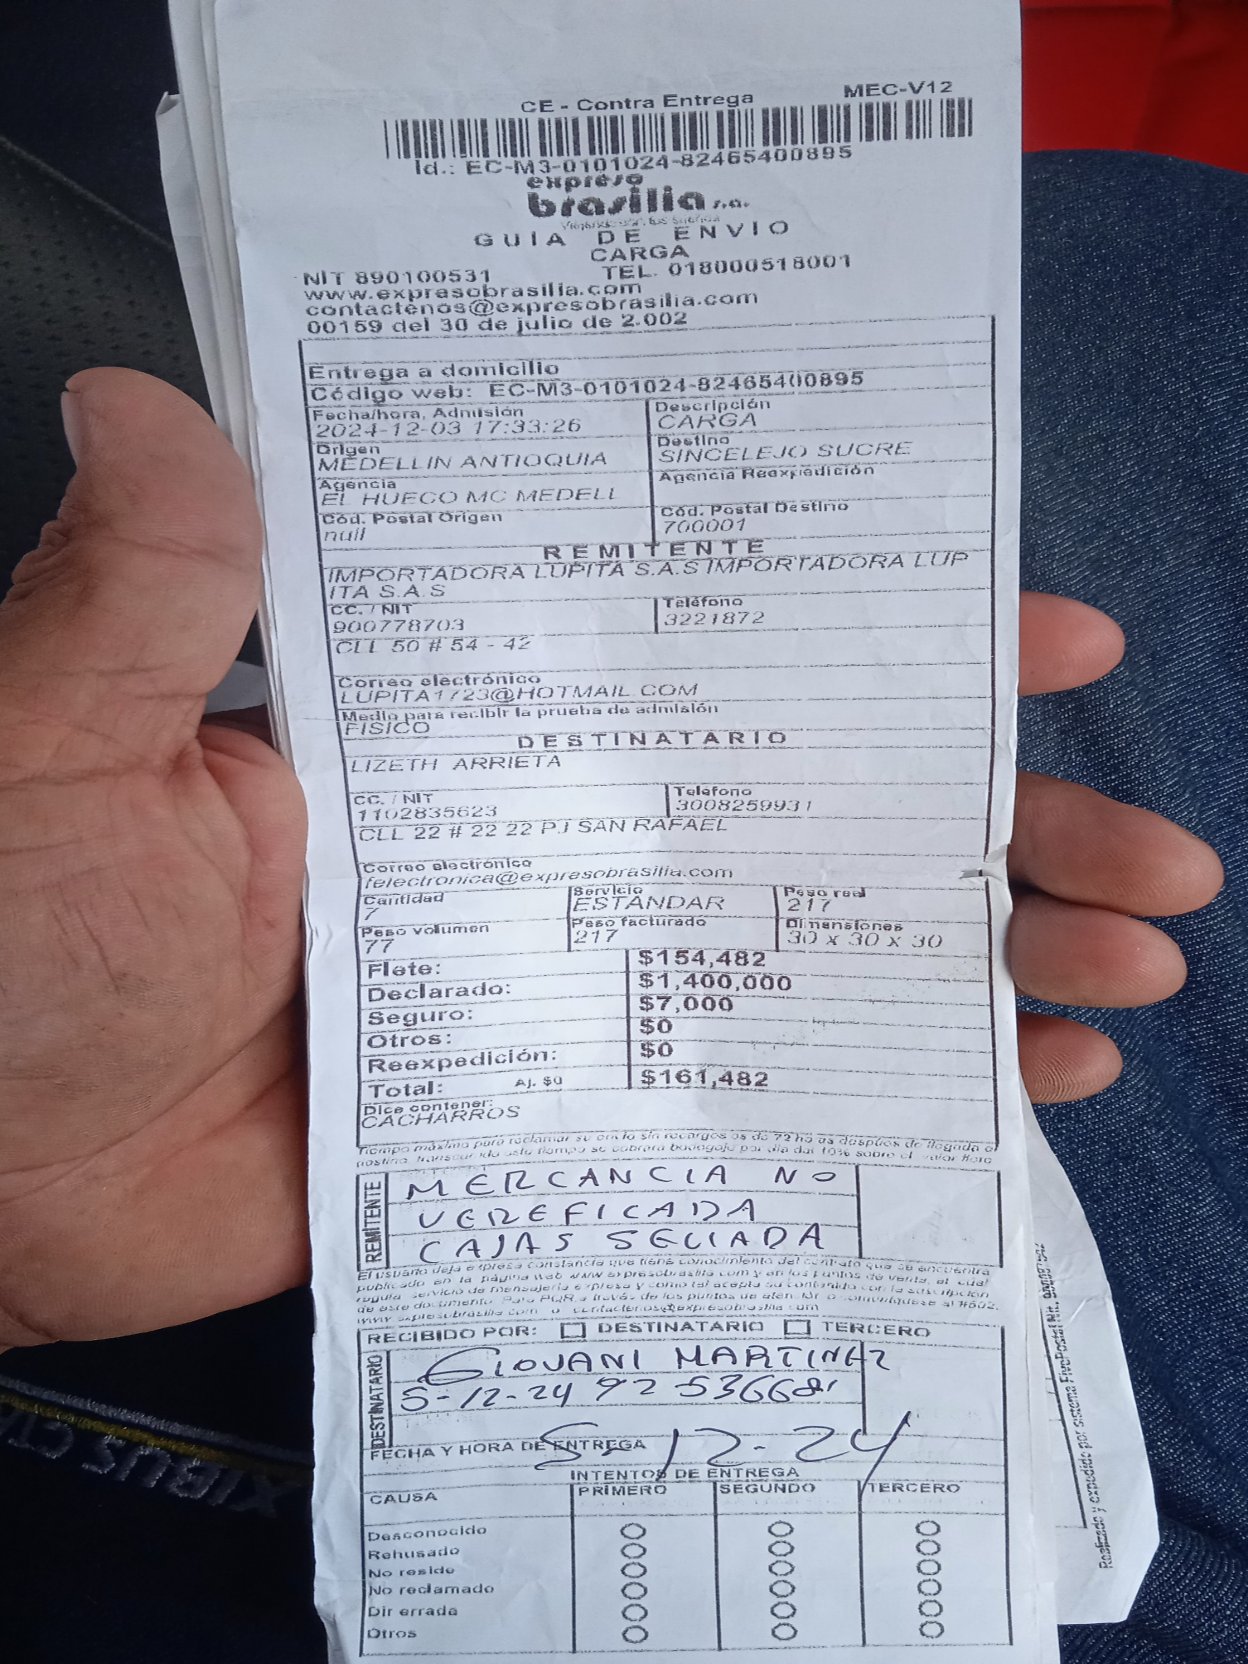 CE - Contra Entrega MEC-V12
Id.: EC-M3-0101024-82465400895
expreso
brasilia s.a.
GUIA DE ENVIO
CARGA
NIT 890100531 TEL. 018000518001
www.expresobrasilia.com
contactenos@expresobrasilia.com
00159 del 30 de julio de 2.002
Entrega a domicilio
Código web: EC-M3-0101024-82465400895
Fecha/hora, Admisión Descripción
2024-12-03 17:33:26 CARGA
Origen Destino
MEDELLIN ANTIOQUIA SINCELEJO SUCRE
Agencia Agencia Reexpedición
EL HUECO MC MEDELL
Cód. Postal Origen Cód. Postal Destino
null 700001
REMITENTE
IMPORTADORA LUPITA S.A.S IMPORTADORA LUP
ITA S.A.S
CC. / NIT Teléfono
900778703 3221872
CLL 50 # 54 - 42
Correo electrónico
LUPITA1723@HOTMAIL.COM
Medio para recibir la prueba de admisión
FISICO
DESTINATARIO
LIZETH ARRIETA
CC. / NIT Teléfono
1102835623 3008259931
CLL 22 # 22 22 PJ SAN RAFAEL
Correo electrónico
felectronica@expresobrasilia.com
Cantidad Servicio Peso real
7 ESTANDAR 217
Peso volumen Peso facturado Dimensiones
77 217 30 x 30 x 30
Flete: $154,482
Declarado: $1,400,000
Seguro: $7,000
Otros: $0
Reexpedición: $0
Total: Aj. $0 $161,482
Dice contener:
CACHARROS
Tiempo máximo para reclamar su envío sin recargos es de 72 horas después de llegada a
destino, transcurrido este tiempo se cobrará bodegaje por día del 10% sobre el valor flete
REMITENTE
MERCANCIA NO
VEREFICADA
CAJAS SELLADA
El usuario deja expresa constancia que tiene conocimiento del contrato que se encuentra
publicado en la página web www.expresobrasilia.com y en los puntos de venta, el cual
regula servicio de mensajería expresa y como tal acepta su contenido con la suscripción
de este documento. Para PQR a través de los puntos de atención o comuníquese al #602.
www.expresobrasilia.com o contactenos@expresobrasilia.com
RECIBIDO POR: DESTINATARIO TERCERO
DESTINATARIO
GIOVANI MARTINEZ
5-12-24 92 536681
FECHA Y HORA DE ENTREGA 5-12-24
INTENTOS DE ENTREGA
CAUSA PRIMERO SEGUNDO TERCERO
Desconocido
Rehusado
No reside
No reclamado
Dir errada
Otros
Realizado y expedido por sistema FivePostal Nit.
XIBUS